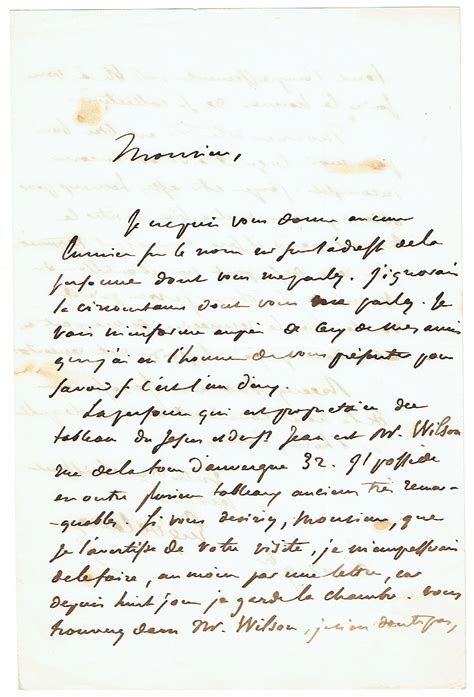 Monsieur,
Je ne puis vous donner aucune
lumière sur le nom et sur l'adresse de la
personne dont vous me parlez. J'ignorais
la circonstance dont vous me parlez. Je
vais m'informer auprès de ceux de mes amis
que j'ai eu l'honneur de vous présenter pour
savoir si c'est l'un d'eux.
La personne qui est propriétaire du
tableau du Jésus et du St Jean est Mr. Wilson
rue de la tour d'auvergne 32. Il possède
en outre plusieurs tableaux anciens très remar-
quables. Si vous desirez, Monsieur, que
je l'avertisse de votre visite, je m'empresserais
de le faire, au moins par une lettre, car
depuis huit jours je garde la chambre. Vous
trouverez dans Mr. Wilson, je n'en doute pas,